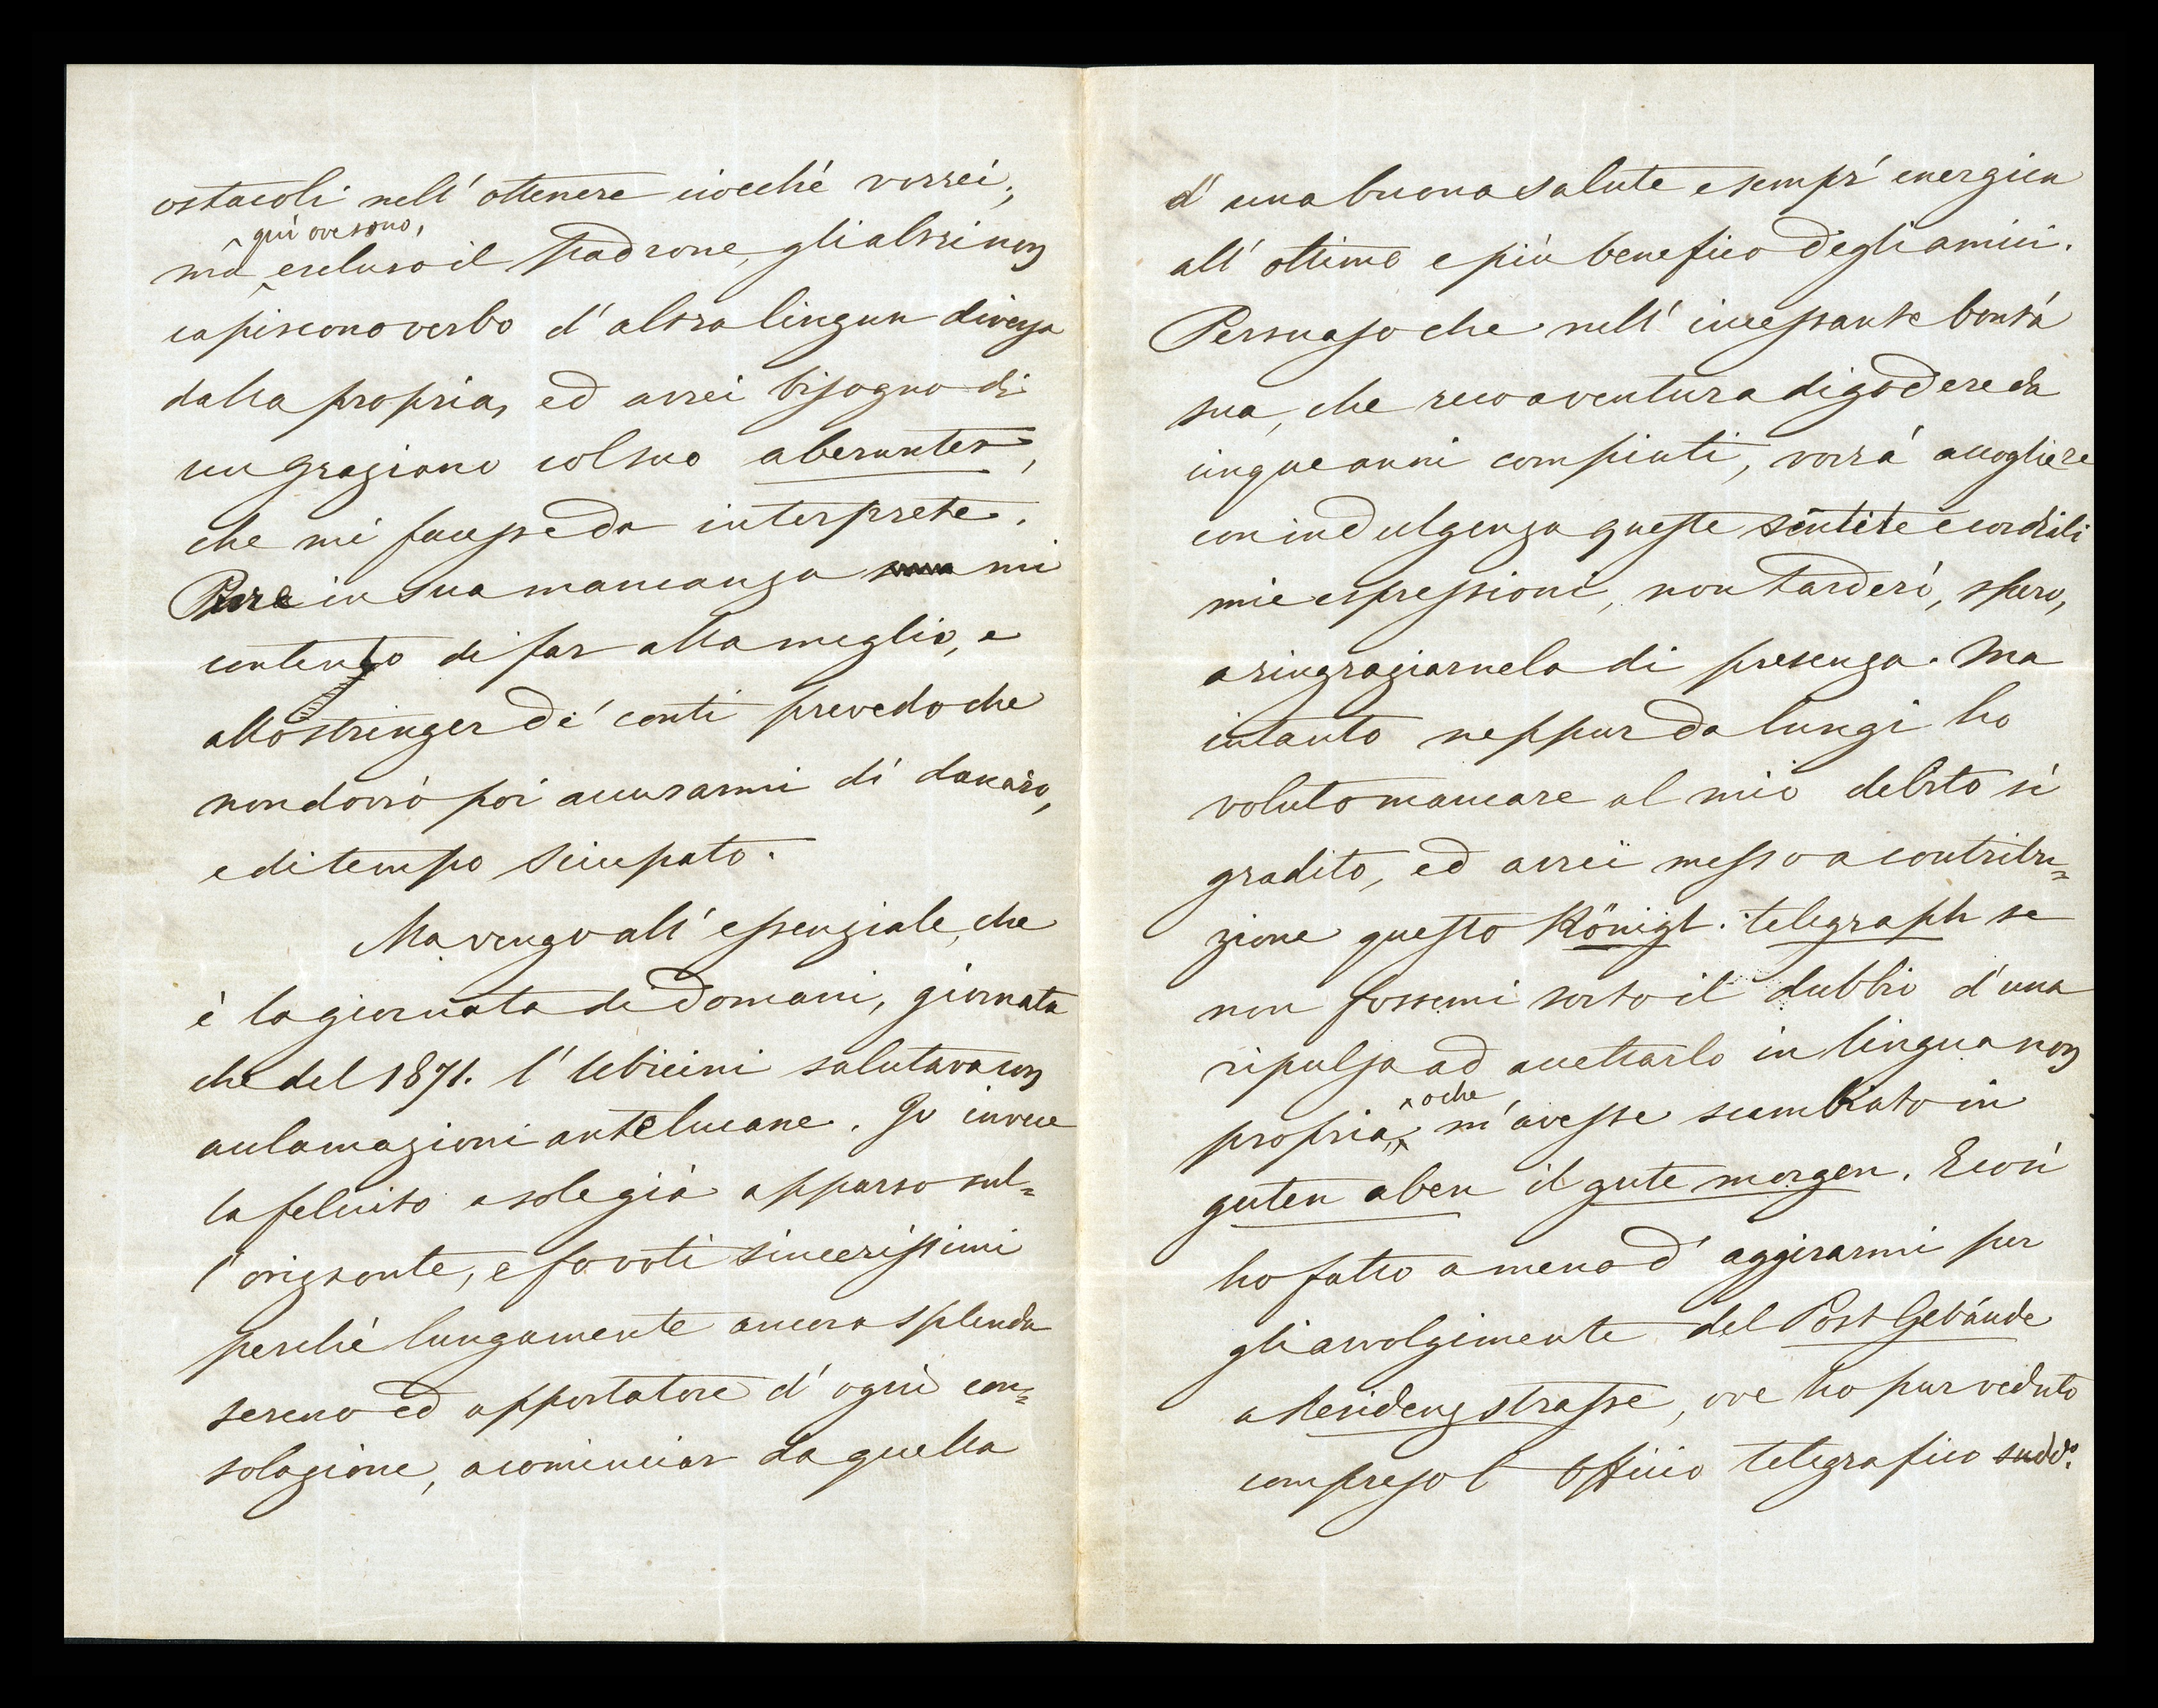 ostacoli nell' ottenere ciocchè vorrei;
qui ove sono,
ma escluso il Padrone, gli altri non
capiscono verbo d' altra lingua diversa
dalla propria, ed avrei bisogno di
un Graziano col suo aberunter,
che mi facesse da interprete.
Pure in sua mancanza mi
contento di far alla meglio, e
allo stringer de' conti prevedo che
non dovrò poi accusarmi di danaro,
e di tempo sciupato.
Ma vengo all' essenziale, che
è la giornata di domani, giornata
che del 1871. l' Ubicini salutava con
aclamazioni antelucane. Io invece
la felicito a sole già apparso sul=
l' orizzonte, e fo voti sincerissimi
perchè lungamente ancora splenda
sereno ed apportatore d' ogni con=
solazione, a cominciar da quella
d' una buona salute e sempr' energica
all' ottimo e più benefico degli amici.
Persuaso che nell' incessante bontà
sua, che reco a ventura di godere da
cinque anni compiuti, vorrà accogliere
con indulgenza queste sentite e cordiali
mie espressioni, non tarderò, spero,
a ringraziarnela di presenza. Ma
intanto neppur da lungi ho
voluto mancare al mio debito sì
gradito, ed avrei messo a contribu=
zione questo Königl. telegraph se
non fossemi sorto il dubbio d' una
ripulsa ad accettarlo in lingua non
o che
propria, m' avesse scambiato in
guten aben il gute morgen. E così
ho fatto a meno d' aggirarmi per
gli avvolgimente del Post Gebäude
a Residenz strasse, ove ho pur veduto
compreso l' Officio telegrafico sudd.º